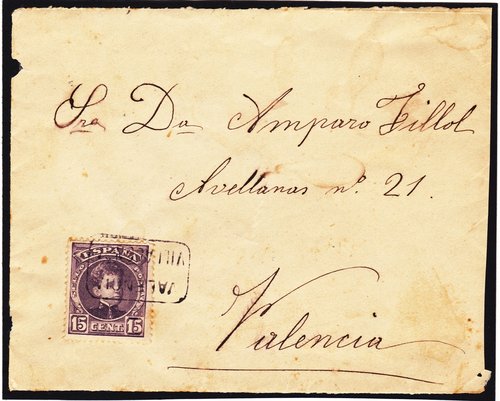 Sra Da Amparo Fillol
Avellanas nº 21.
Valencia
ESPAÑA
15 CENT. 15